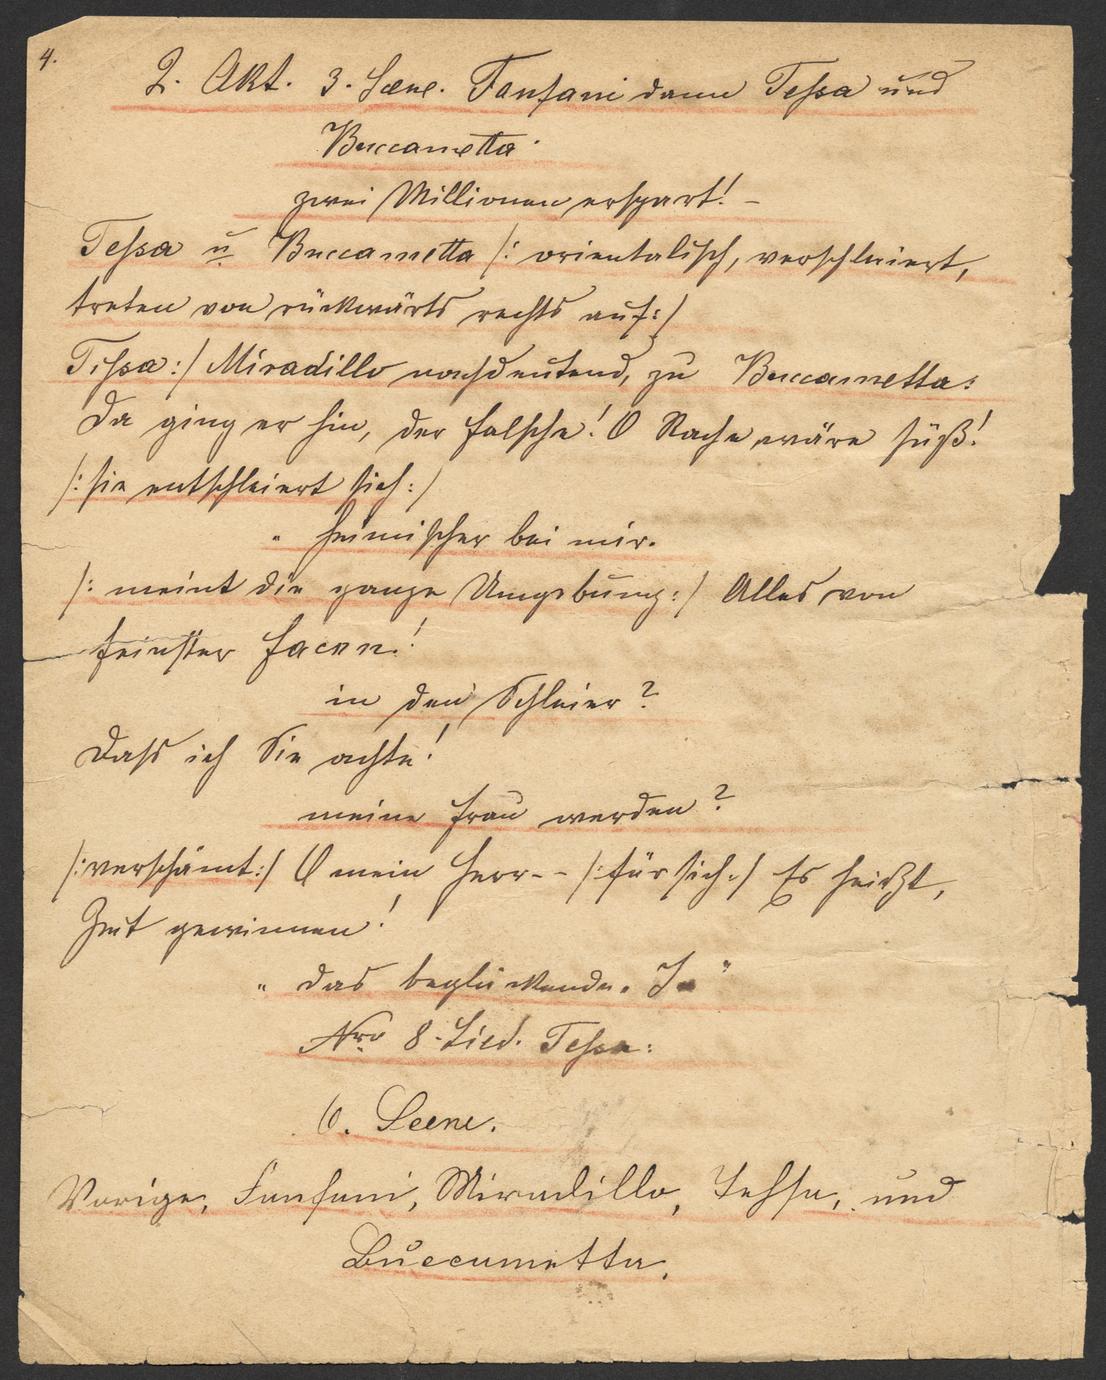 4.
2. Akt. 3. Scene. Fanfani dann Tessa und
Buccametta.
zwei Millionen erspart! –
Tessa u Buccametta /: orientalisch, verschleiert,
treten von rückwärts rechts auf :/
Tessa :/ Miradillo nachdeutend, zu Buccametta:
Da ging er hin, der Falsche! O Rache wäre süß!
/: sie entschleiert sich :/
" heimischer bei mir.
/: meint die ganze Umgebung :/ Alles von
feinster Facon!
in den Schleier?
Dass ich Sie achte!
meine Frau werden?
/: verschämt :/ O mein Herr-- /: für sich :/ Es heißt,
Zeit gewinnen!
" das beglückende. Ja"
Nro 8. Lied. Tessa:
6. Scene.
Vorige, Fanfani, Miradillo, Tessa, und
Buccametta.